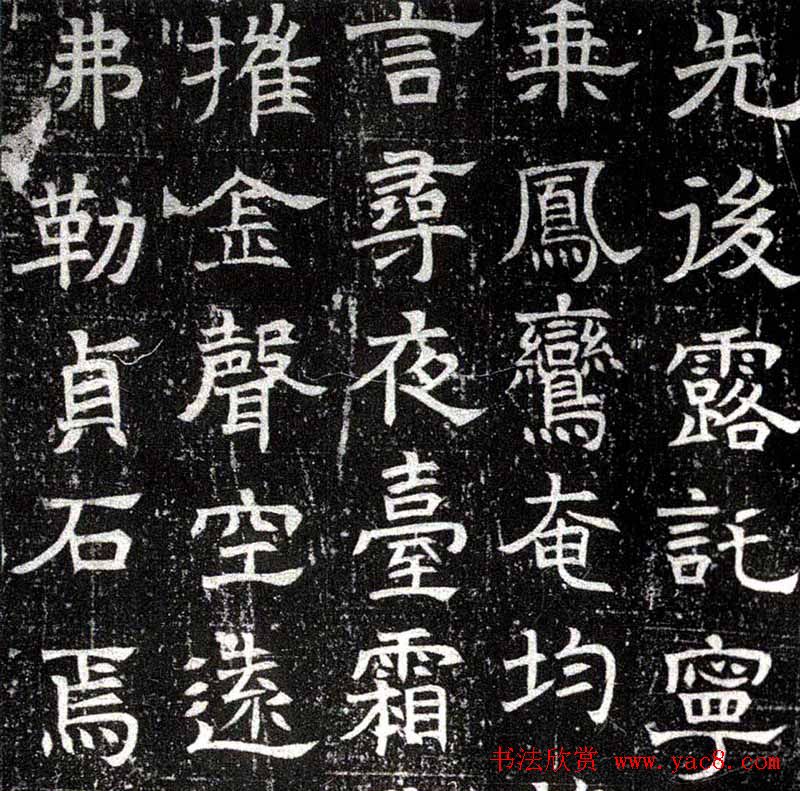 先後露託寧
乗鳳鸞奄均
言尋夜臺霜
摧金聲空遠
弗勒貞石焉
书法欣赏 www.yac8.com